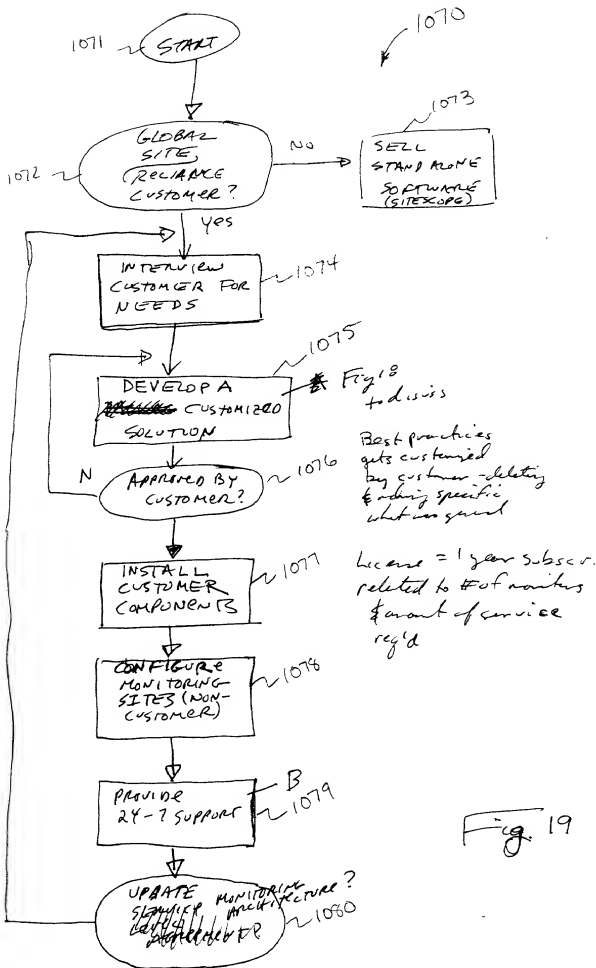 1070
1071
START
1073
1072
GLOBAL
SITE,
RELIANCE
CUSTOMER?
NO
SELL
STANDALONE
SOFTWARE
(SITESCOPE)
yes
INTERVIEW
CUSTOMER FOR
NEEDS
1074
1075
DEVELOP A
CUSTOMIZED
SOLUTION
Fig 18
to discuss
N
APPROVED BY
CUSTOMER?
1076
Best practices
gets customized
by customer - deleting
& adding specific
what was general
INSTALL
CUSTOMER
COMPONENTS
1077
License = 1 year subscr.
related to # of monitors
& amount of service
req'd
CONFIGURE
MONITORING
SITES (NON-
CUSTOMER)
1078
PROVIDE
24-7 SUPPORT
B
1079
Fig. 19
UPDATE
MONITORING
ARCHITECTURE?
1080